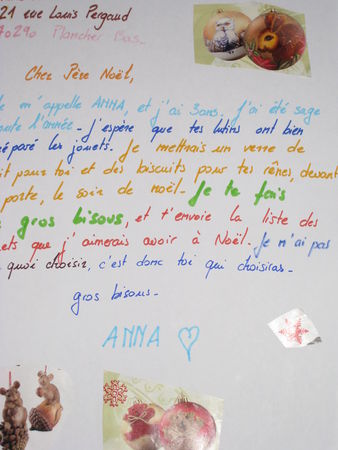 21 rue Louis Pergaud
70290 Plancher Bas_
Cher Père Noël,
m'appelle ANNA, et j'ai 3ans. J'ai été sage
toute l'année_ J'espère que tes lutins ont bien
préparé les jouets_ Je mettrais un verre de
lait pour toi et des biscuits pour tes rênes, devant
porte, le soir de noël_ Je te fais
gros bisous, et t'envoie la liste des
jets que j'aimerais avoir à Noël_ Je n'ai pas
quoi choisir, c'est donc toi qui choisiras_
gros bisous_
ANNA